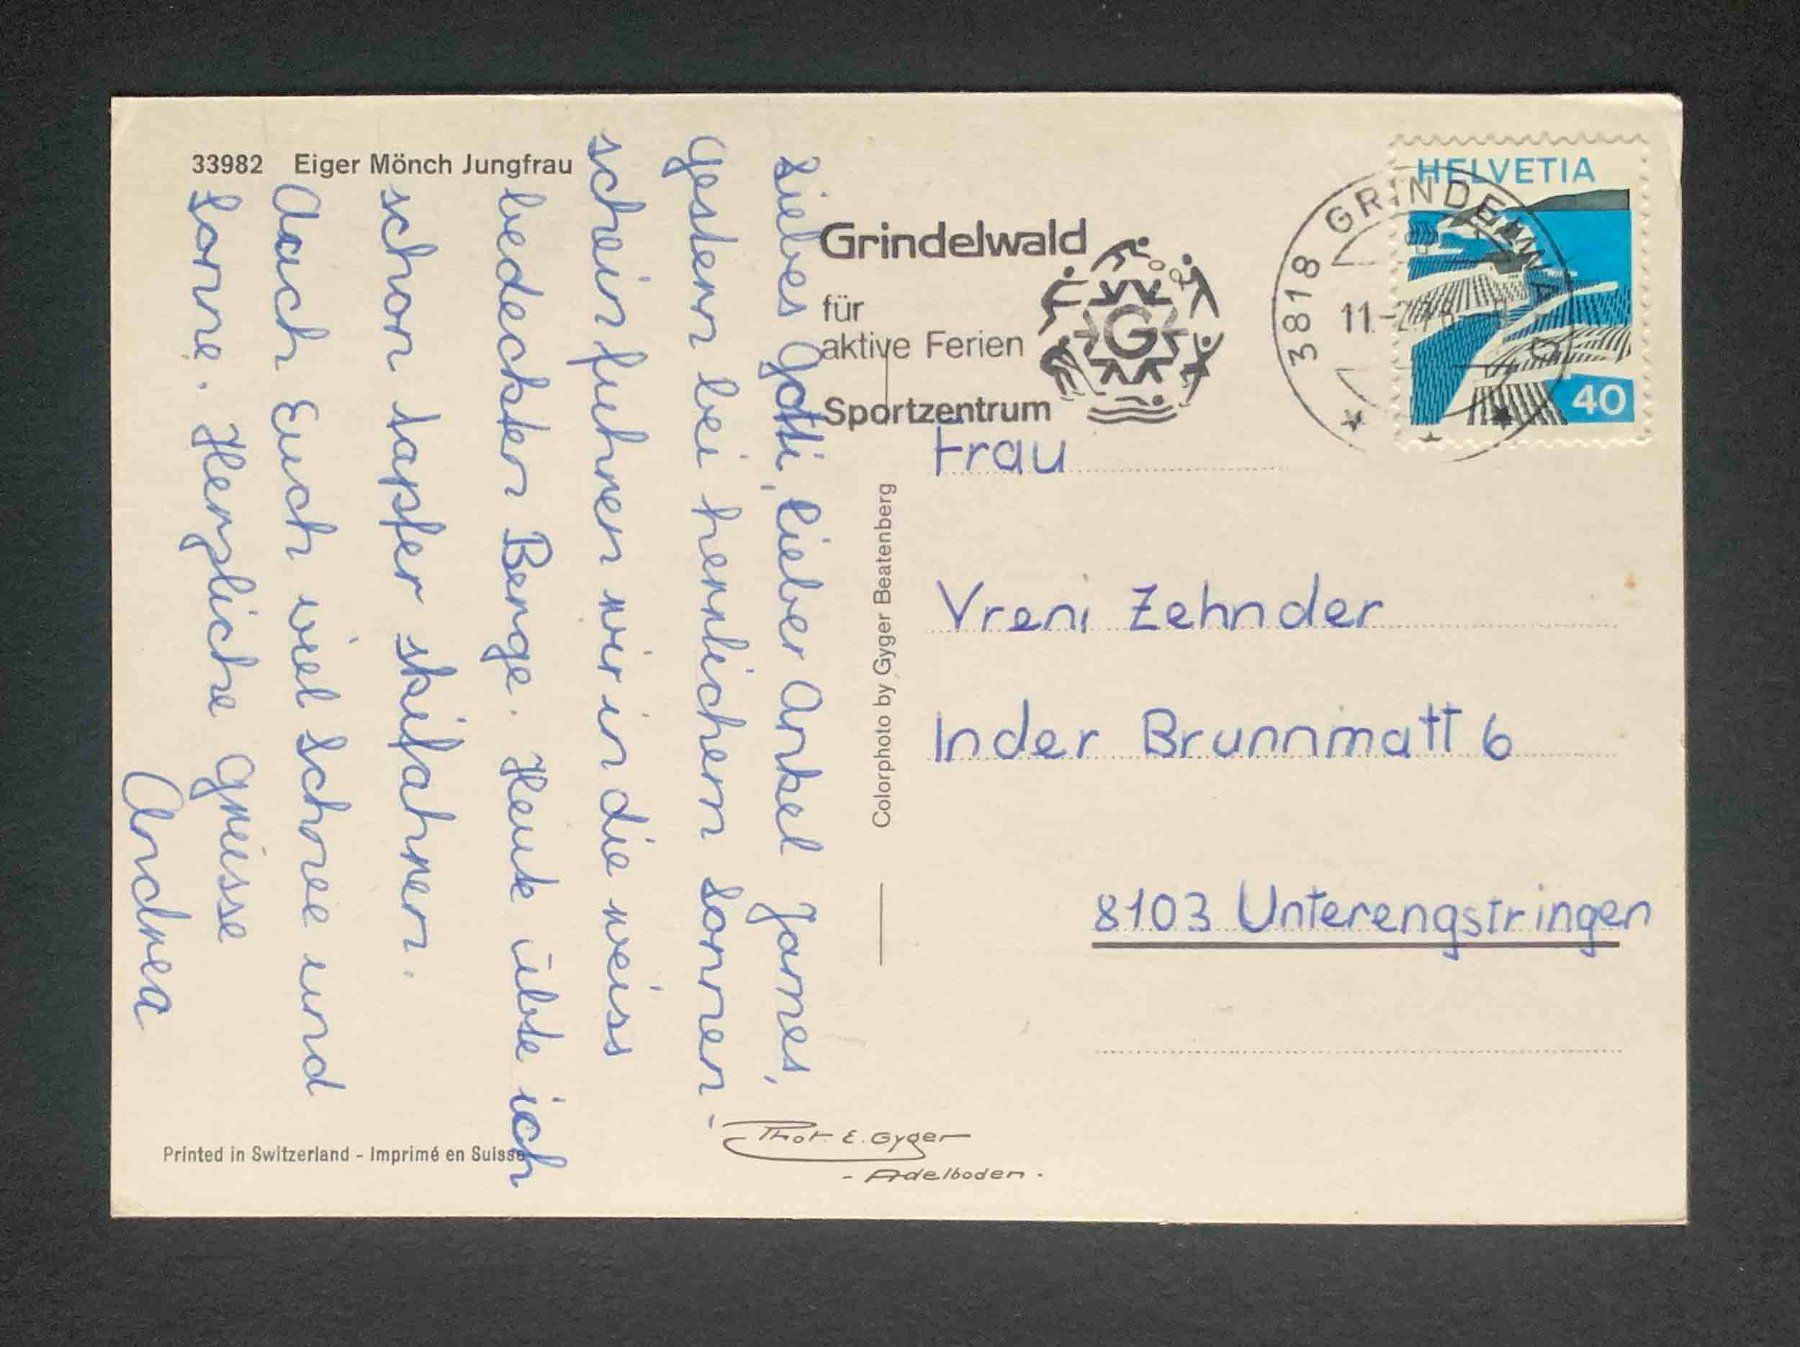 33982 Eiger Mönch Jungfrau
Liebes Gotti, lieber Onkel James,
Gestern bei herrlichem Sonnen-
schein fuhren wir in die weiss
bedeckten Berge. Heute übte ich
schon tapfer skifahren.
Auch Euch viel Schnee und
Sonne. Herzliche Grüsse
Andrea
Printed in Switzerland - Imprimé en Suisse
Phot. E. Gyger
- Adelboden -
Colorphoto by Gyger Beatenberg
Grindelwald
für
aktive Ferien
Sportzentrum
G
3818 GRINDELWALD
11.-2
HELVETIA
40
Frau
Vreni Zehnder
In der Brunnmatt 6
8103 Unterengstringen